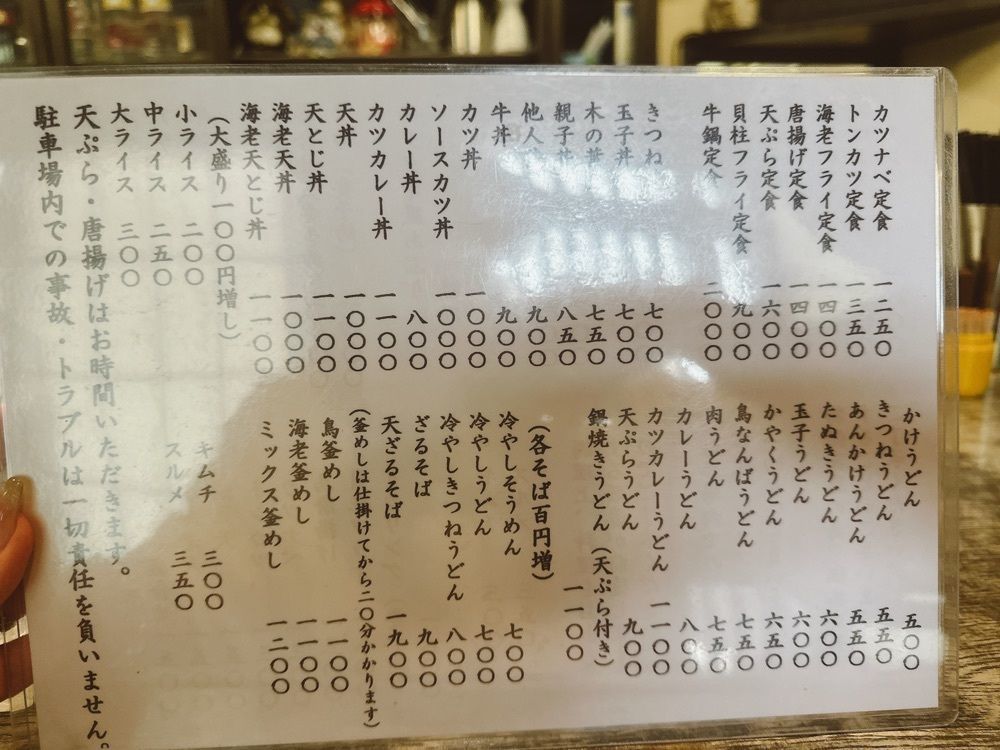 カツナベ定食 一二五〇
トンカツ定食 一三五〇
海老フライ定食 一四〇〇
唐揚げ定食 一四〇〇
天ぷら定食 一六〇〇
貝柱フライ定食 九〇〇
牛鍋定食 二〇〇〇
きつね 七〇〇
玉子丼 七〇〇
木の葉丼 七五〇
親子丼 八五〇
他人 九〇〇
牛丼 九〇〇
カツ丼 一〇〇〇
ソースカツ丼 一〇〇〇
カレー丼 八〇〇
カツカレー丼 一一〇〇
天丼 一〇〇〇
天とじ丼 一一〇〇
海老天丼 一〇〇〇
海老天とじ丼 一一〇〇
（大盛り一〇〇円増し）
小ライス 二〇〇
中ライス 二五〇
大ライス 三〇〇
かけうどん 五〇〇
きつねうどん 五五〇
あんかけうどん 五五〇
たぬきうどん 六〇〇
玉子うどん 六〇〇
かやくうどん 六五〇
鳥なんばうどん 七五〇
肉うどん 七五〇
カレーうどん 八〇〇
カツカレーうどん 一一〇〇
天ぷらうどん 九〇〇
鍋焼きうどん（天ぷら付き） 一一〇〇
（各そば百円増）
冷やしそうめん 七〇〇
冷やしうどん 七〇〇
冷やしきつねうどん 八〇〇
ざるそば 九〇〇
天ざるそば 一九〇〇
（釜めしは仕掛けてから二〇分かかります）
鳥釜めし 一一〇〇
海老釜めし 一一〇〇
ミックス釜めし 一二〇〇
キムチ 三〇〇
スルメ 三五〇
天ぷら・唐揚げはお時間いただきます。
駐車場内での事故・トラブルは一切責任を負いません。